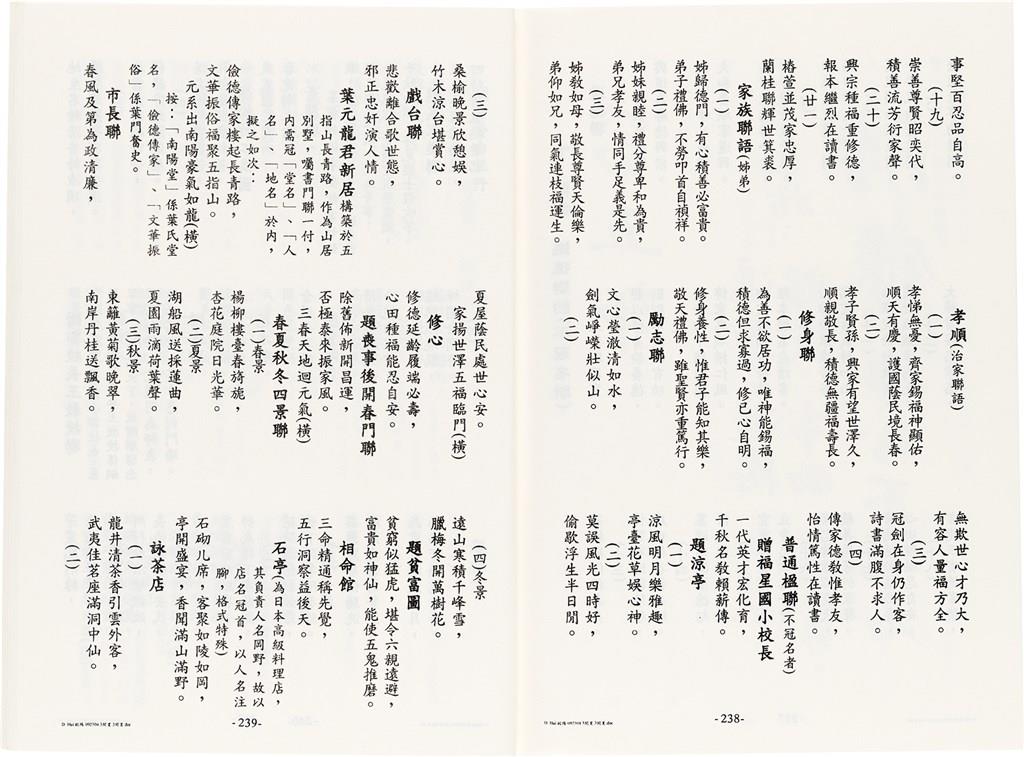 事堅百忍品自高。
(十九)
崇善尊賢昭奕代，
積善流芳衍家聲。
(二十)
興宗種福重修德，
報本繼烈在讀書。
(廿一)
椿萱並茂家忠厚，
蘭桂聯輝世箕裘。
家族聯語(姊弟)
(一)
姊歸德門，有心積善必富貴。
弟子禮佛，不勞叩首自禎祥。
(二)
姊妹親睦，禮分尊卑和為貴，
弟兄孝友，情同手足義是先。
(三)
姊敎如母，敬長尊賢天倫樂，
弟仰如兄，同氣連枝福運生。
孝順(治家聯語)
(一)
孝悌無憂，齊家錫福神顯佑，
順天有慶，護國蔭民境長春。
(二)
孝子賢孫，興家有望世澤久，
順親敬長，積德無疆福壽長。
修身聯
(一)
為善不欲居功，唯神能錫福，
積德但求寡過，修已心自明。
(二)
修身養性，惟君子能知其樂，
敬天禮佛，雖聖賢亦重篤行。
勵志聯
(一)
文心瑩澈清如水，
劍氣崢嶸壯似山。
(二)
無欺世心才乃大，
有容人量福方全。
(三)
冠劍在身仍作客，
詩書滿腹不求人。
(四)
傳家德敎惟孝友，
怡情篤性在讀書。
普通楹聯(不冠名者)
贈福星國小校長
一代英才宏化育，
千秋名敎賴薪傳。
題涼亭
(一)
涼風明月樂雅趣，
亭臺花草娛心神。
(二)
莫誤風光四時好，
偷歇浮生半日閒。
-238-
(三)
桑榆晚景欣憩娛，
竹木涼台堪賞心。
戲台聯
悲歡離合歌世態，
邪正忠奸演人情。
葉元龍君新居構築於五
指山長青路，作為山居
別墅，囑書門聯一付，
內需冠「堂名」、「人
名」、「地名」於內，
擬之如次：
儉德傳家樓起長青路，
文華振俗福聚五指山。
元系出南陽豪氣如龍(橫)
按：「南陽堂」係葉氏堂
名，「儉德傳家」、「文華振
俗」係葉門奮史。
市長聯
春風及第為政清廉，
夏屋蔭民處世心安。
家揚世澤五福臨門(橫)
修心
修德延齡履端必壽，
心田種福能忍自安。
題喪事後開春門聯
除舊佈新開昌運，
否極泰來振家風。
三春天地迴元氣(橫)
春夏秋冬四景聯
(一)春景
楊柳樓臺春旖旎，
杏花庭院日光華。
(二)夏景
湖船風送採蓮曲，
夏園雨滴荷葉聲。
(三)秋景
東籬黃菊歌晚翠，
南岸丹桂送飄香。
(四)冬景
遠山寒積千峰雪，
臘梅冬開萬樹花。
題貧富圖
貧窮似猛虎，堪令六親遠避，
富貴如神仙，能使五鬼推磨。
相命館
三命精通稱先覺，
五行洞察益後天。
石亭(為日本高級料理店，
其負責人名岡野，故以
店名冠首，以人名注
腳，格式特殊)
石砌儿席，客聚如陵如岡，
亭開盛宴，香聞滿山滿野。
詠茶店
(一)
龍井清茶香引雲外客，
武夷佳茗座滿洞中仙。
(二)
-239-